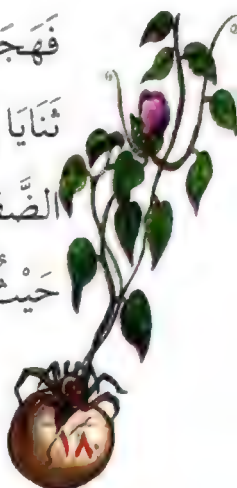 فَهَجَ
ثَنَايَا
الضَّف
حَيْثُ
١٨